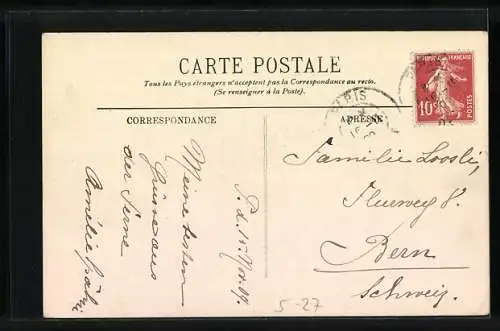 CARTE POSTALE
Tous les Pays étrangers n'acceptent pas la Correspondance au recto.
(Se renseigner à la Poste).
CORRESPONDANCE
ADRESSE
PARIS
10c
POSTES
P. d. 15. Nov. 09.
Meine besten
Grüsse aus
der Ferne
Amélie
Familie Loosli,
Flurweg 8.
Bern
Schweiz.
5-27